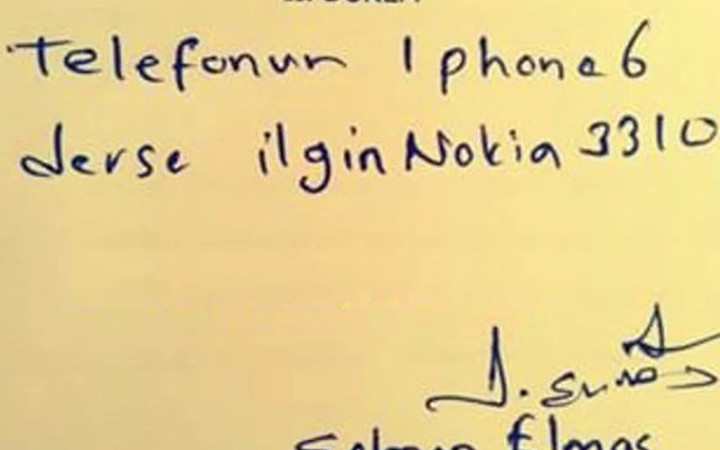 Telefonun Iphone 6
derse ilgin Nokia 3310
Elmas